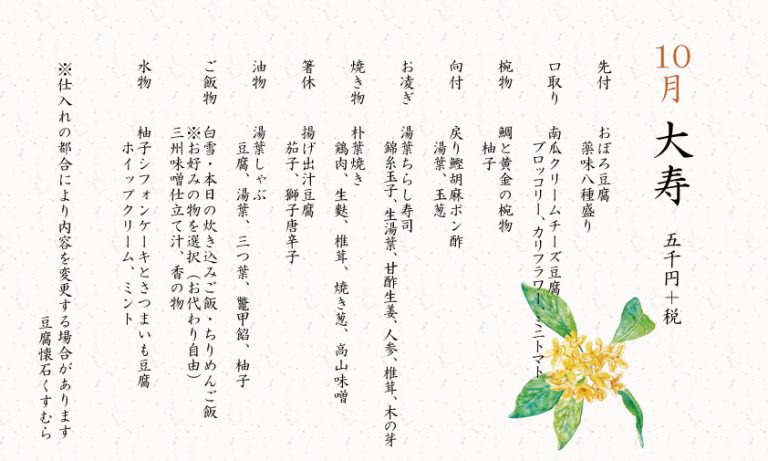 10月 大寿 五千円+税
先付 おぼろ豆腐
薬味八種盛り
口取り 南瓜クリームチーズ豆腐
ブロッコリー、カリフラワー、ミニトマト
椀物 鯛と黄金の椀物
柚子
向付 戻り鰹胡麻ポン酢
湯葉、玉葱
お凌ぎ 湯葉ちらし寿司
錦糸玉子、生湯葉、甘酢生姜、人参、椎茸、木の芽
焼き物 朴葉焼き
鶏肉、生麩、椎茸、焼き葱、高山味噌
箸休 揚げ出汁豆腐
茄子、獅子唐辛子
油物 湯葉しゃぶ
豆腐、湯葉、三つ葉、鼈甲餡、柚子
ご飯物 白雪・本日の炊き込みご飯・ちりめんご飯
※お好みの物を選択(お代わり自由)
三州味噌仕立て汁、香の物
水物 柚子シフォンケーキとさつまいも豆腐
ホイップクリーム、ミント
※仕入れの都合により内容を変更する場合があります
豆腐懐石くすむら